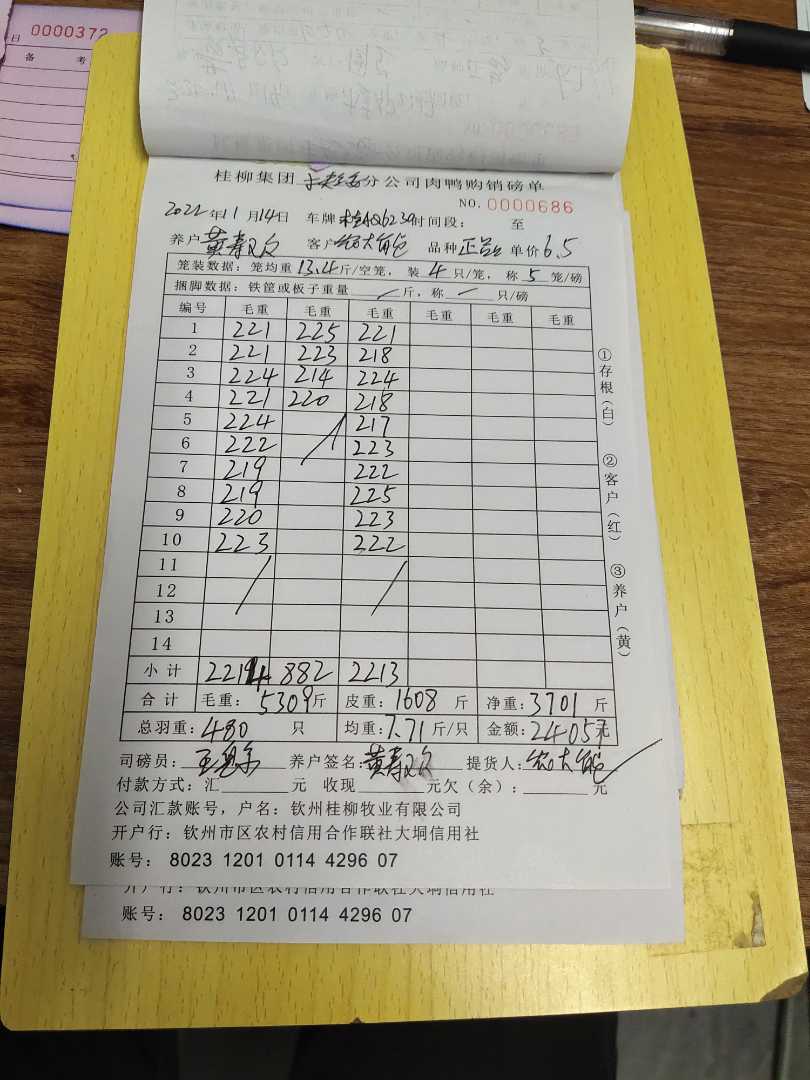 日 0000372
备 考
桂柳集团 分公司肉鸭购销磅单
NO. 0000686
2022年11月14日 车牌 桂AQ6239 时间段: 至
养户 黄寿 客户 品种 正品 单价 6.5
笼装数据: 笼均重 13.4 斤/空笼, 装 4 只/笼, 称 5 笼/磅
捆脚数据: 铁筐或板子重量 / 斤, 称 一 只/磅
编号 毛重 毛重 毛重 毛重 毛重 毛重
1 221 225 221
2 221 223 218
3 224 214 224
4 221 220 218
5 224 217
6 222 223
7 219 222
8 219 225
9 220 223
10 223 222
11
12
13
14
小计 2214 882 2213
合计 毛重: 5309斤 皮重: 1608 斤 净重: 3701 斤
总羽重: 480 只 均重: 7.71 斤/只 金额: 2405元
①存根(白)
②客户(红)
③养户(黄)
司磅员: 养户签名: 黄寿 提货人:
付款方式: 汇 元 收现 元欠(余): 元
公司汇款账号, 户名: 钦州桂柳牧业有限公司
开户行: 钦州市区农村信用合作联社大垌信用社
账号: 8023 1201 0114 4296 07
开户行: 钦州市区农村信用合作联社大垌信用社
账号: 8023 1201 0114 4296 07